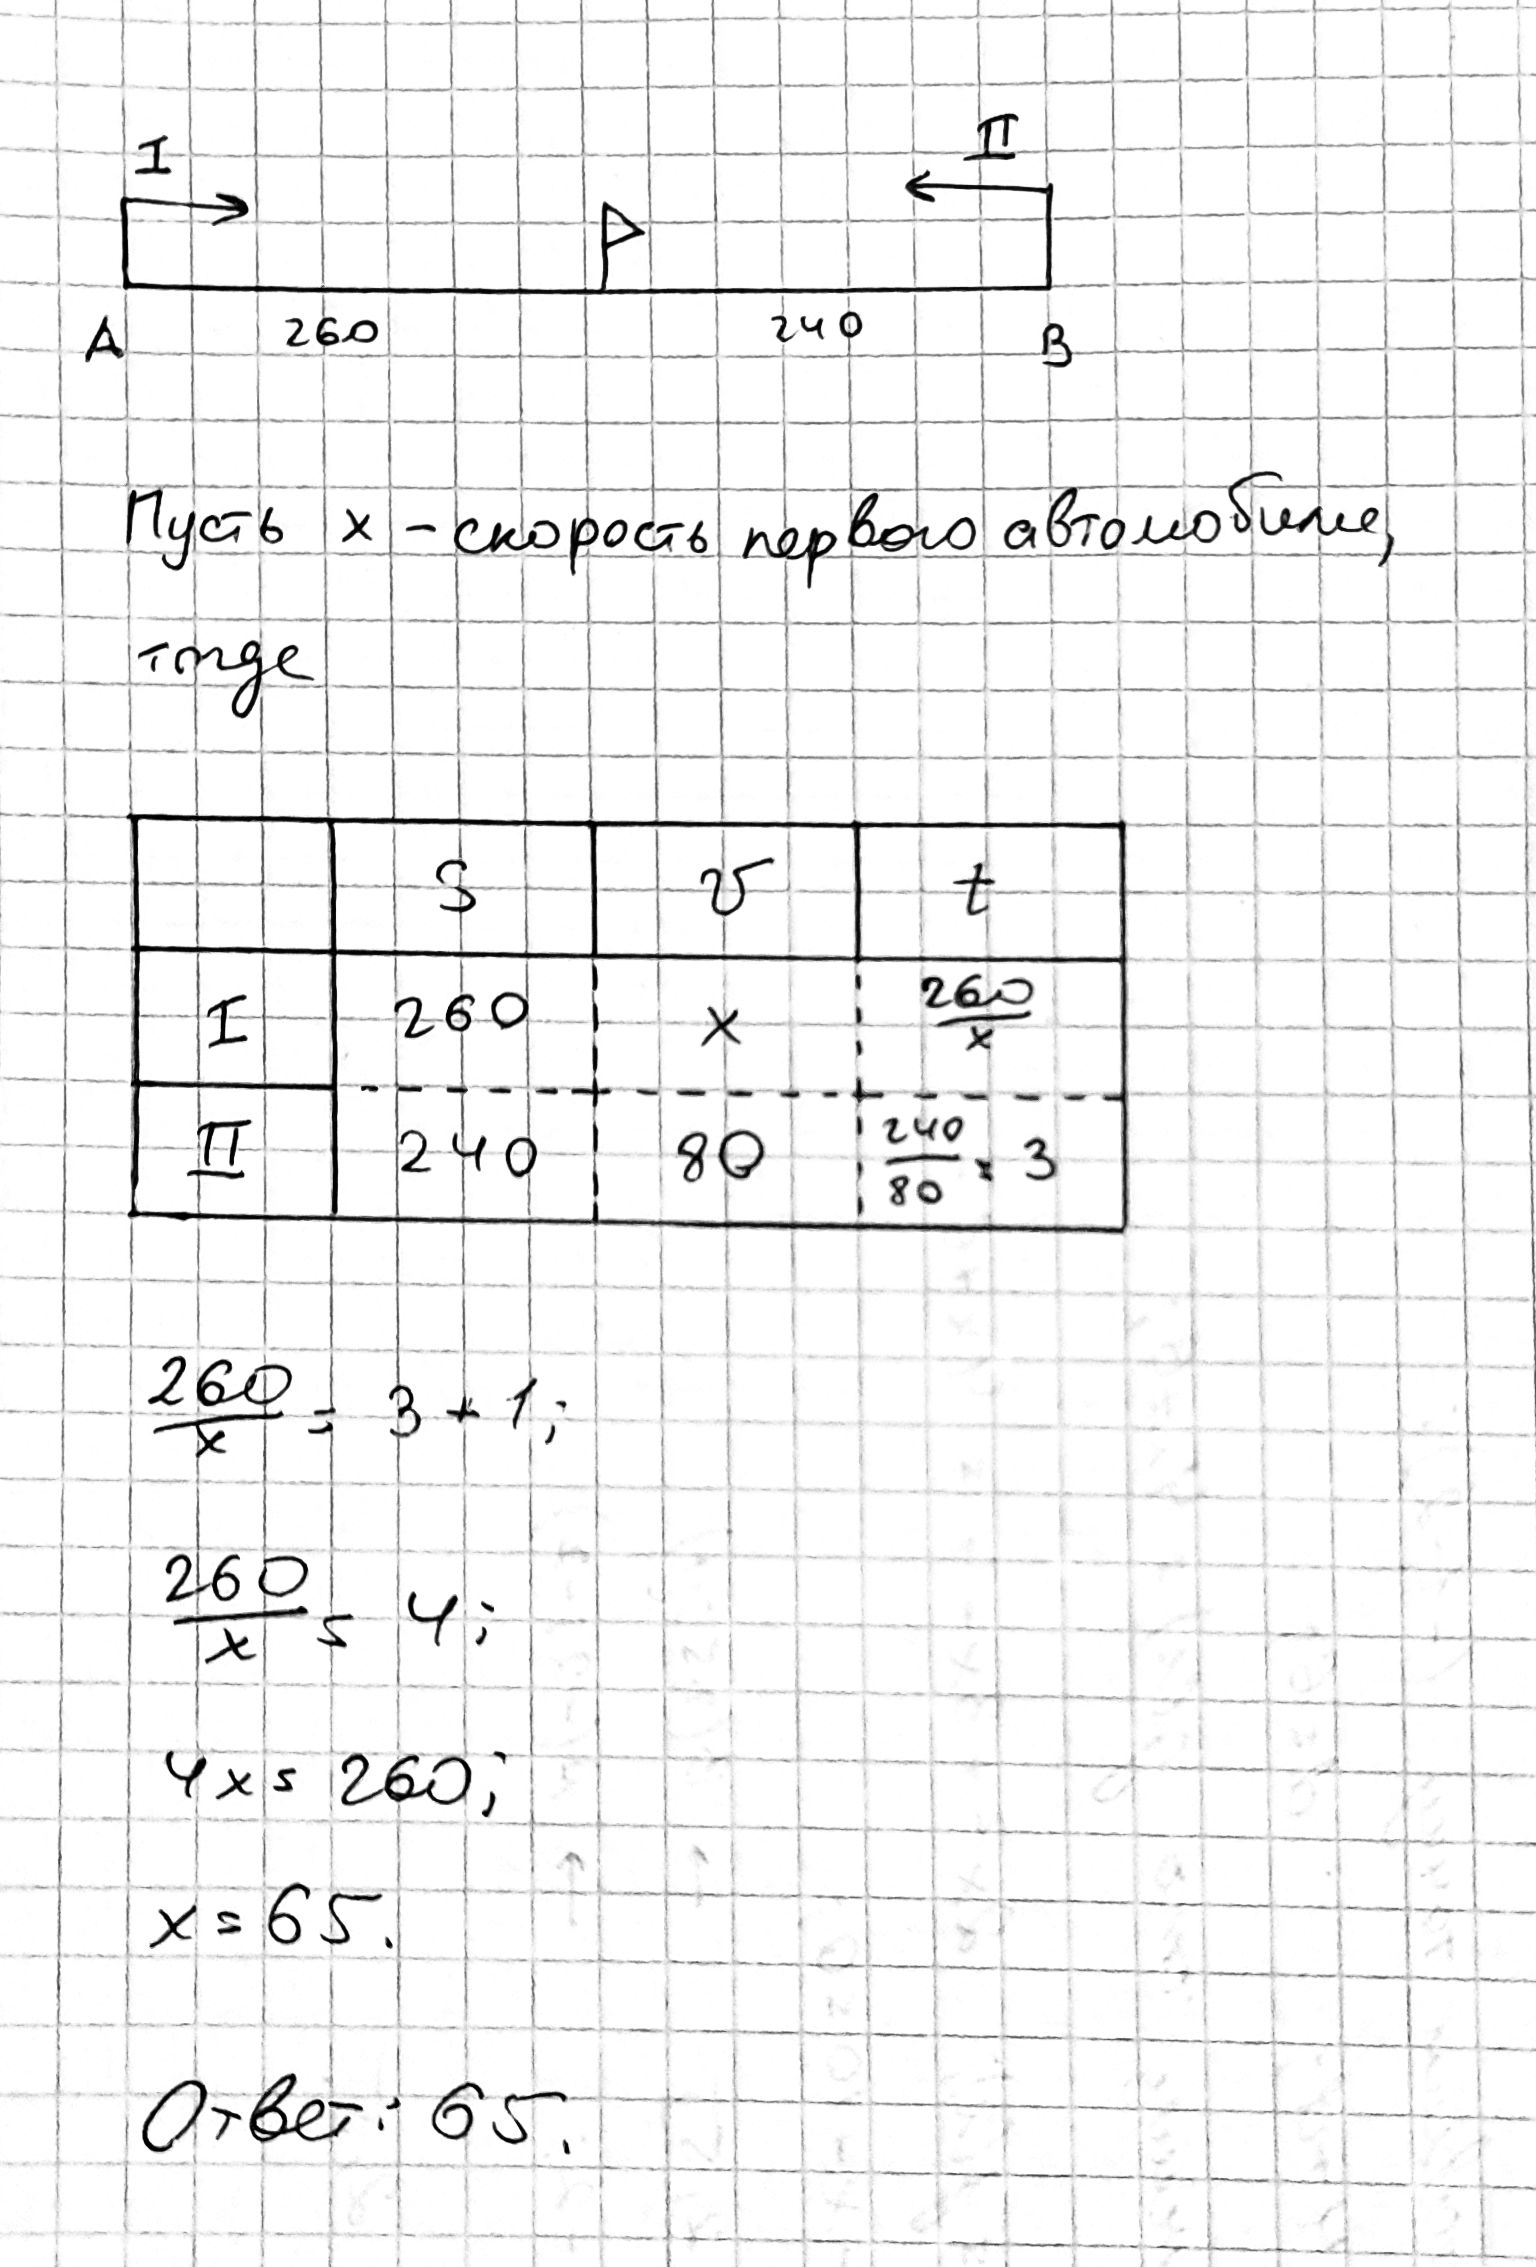 I II
A 260 240 B
Пусть x – скорость первого автомобиля,
тогда
S v t
I 260 x 260/x
II 240 80 240/80 = 3
260/x = 3 + 1;
260/x = 4;
4x = 260;
x = 65.
Ответ: 65.